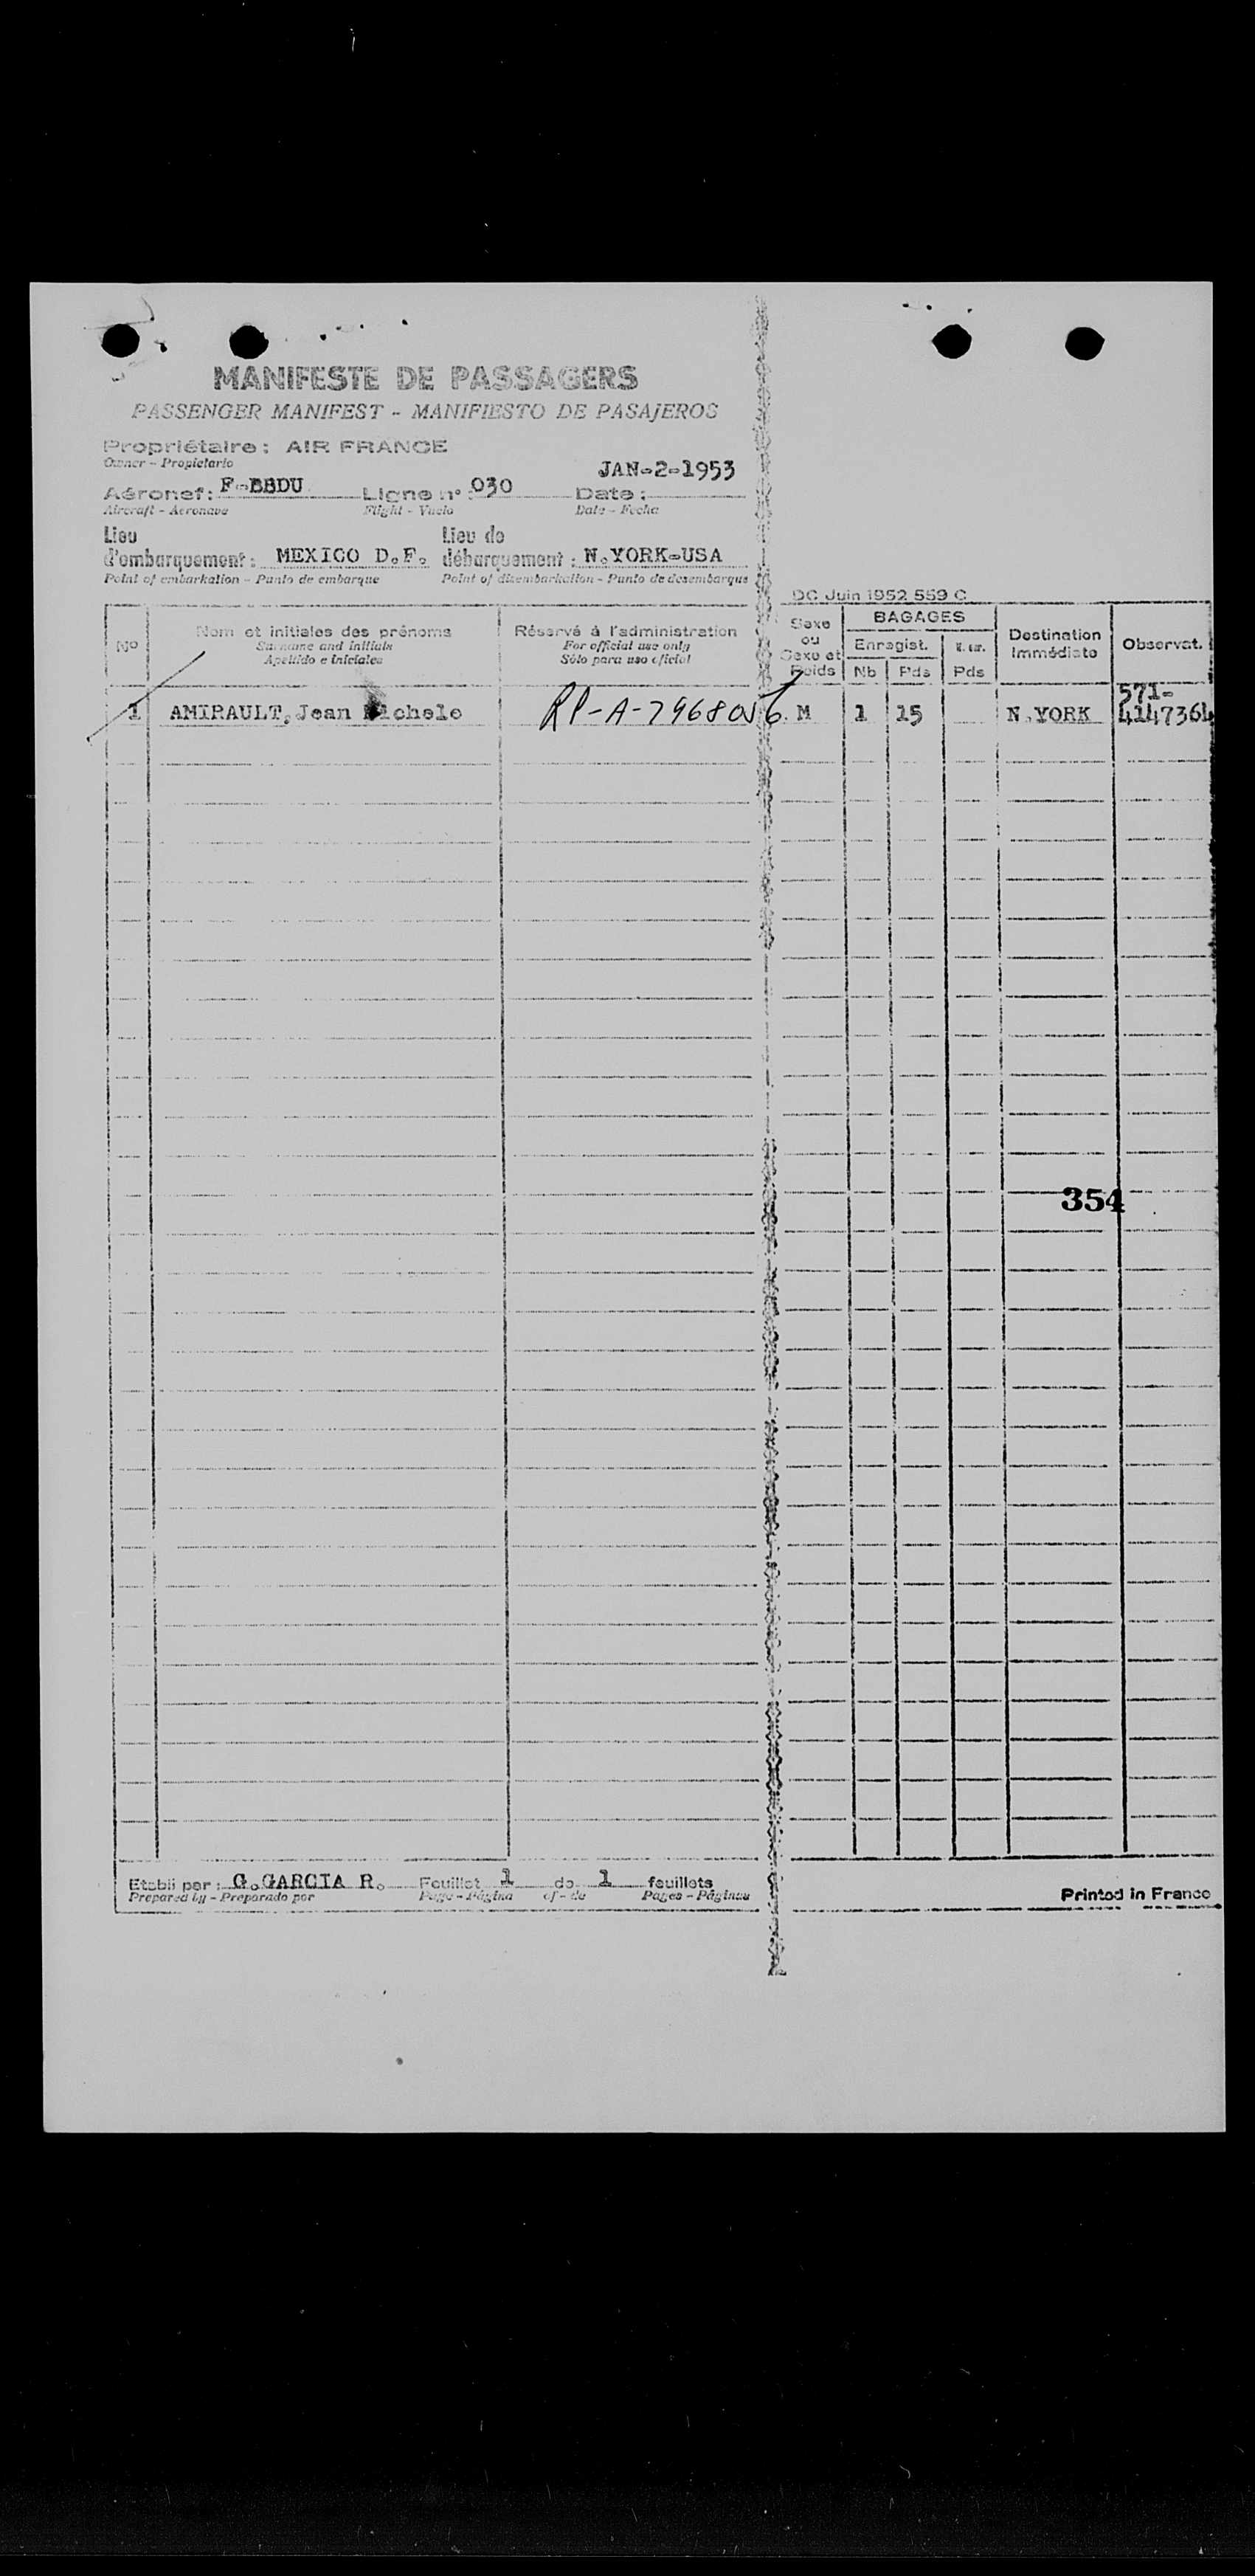 MANIFESTE DE PASSAGERS
PASSENGER MANIFEST - MANIFIESTO DE PASAJEROS
Propriétaire : AIR FRANCE
Owner - Propietario
JAN-2-1953
Aéronef : F-BBDU Ligne n° : 030 Date :
Aircraft - Aeronave Flight - Vuelo Date - Fecha
Lieu d'embarquement : MEXICO D.F.
Point of embarkation - Punto de embarque
Lieu de débarquement : N.YORK-USA
Point of disembarkation - Punto de desembarque
DC Juin 1952 559 C
No
Nom et initiales des prénoms
Surname and initials
Apellido e iniciales
Réservé à l'administration
For official use only
Sólo para uso oficial
Sexe ou Sexe et Poids
BAGAGES
Enregist.
Nb Pds Pds
Destination Immédiate
Observat.
1 AMIRAULT, Jean Michele M 1 15 N.YORK 571-
Etabli par : G.GARCIA R. Feuillet 1 de 1 feuillets
Prepared by - Preparado por Page - Página of - de Pages - Páginas
354
Printed in France